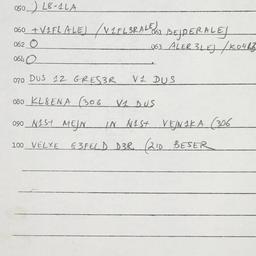 050 ) L8-1LA
060 +V1FLALEJ / V1FLBRALEJ 061 BEJDERALEJ
062 O 063 ALER3LEJ /K04
064 O
070 DUS 12 GRES3R V1 DUS
080 KL8ENA (306 V1 DUS
090 N1S+ MEJN IN N1S+ VEJN1KA (306
100 VELYE E3FELD D3R (210 BESER